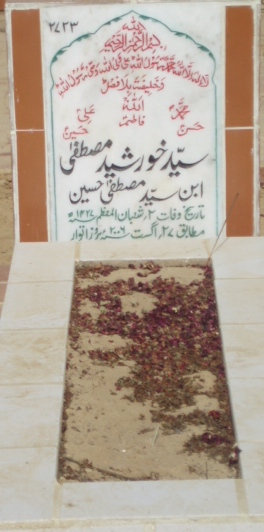 ۲۷۲۳
بسم اللہ الرحمن الرحیم
لا الہ الا اللہ محمد رسول اللہ علی ولی اللہ وصی رسول اللہ
وخلیفتہ بلا فصل
محمدؐ اللہ علیؑ
حسنؑ فاطمہؑ حسینؑ
سیّد خورشید مصطفیٰ
ابن سیّد مصطفیٰ حسین
تاریخ وفات ۲ شعبان المعظم ۱۴۲۷ھ
مطابق ۲۷ اگست ۲۰۰۶ء بروز اتوار